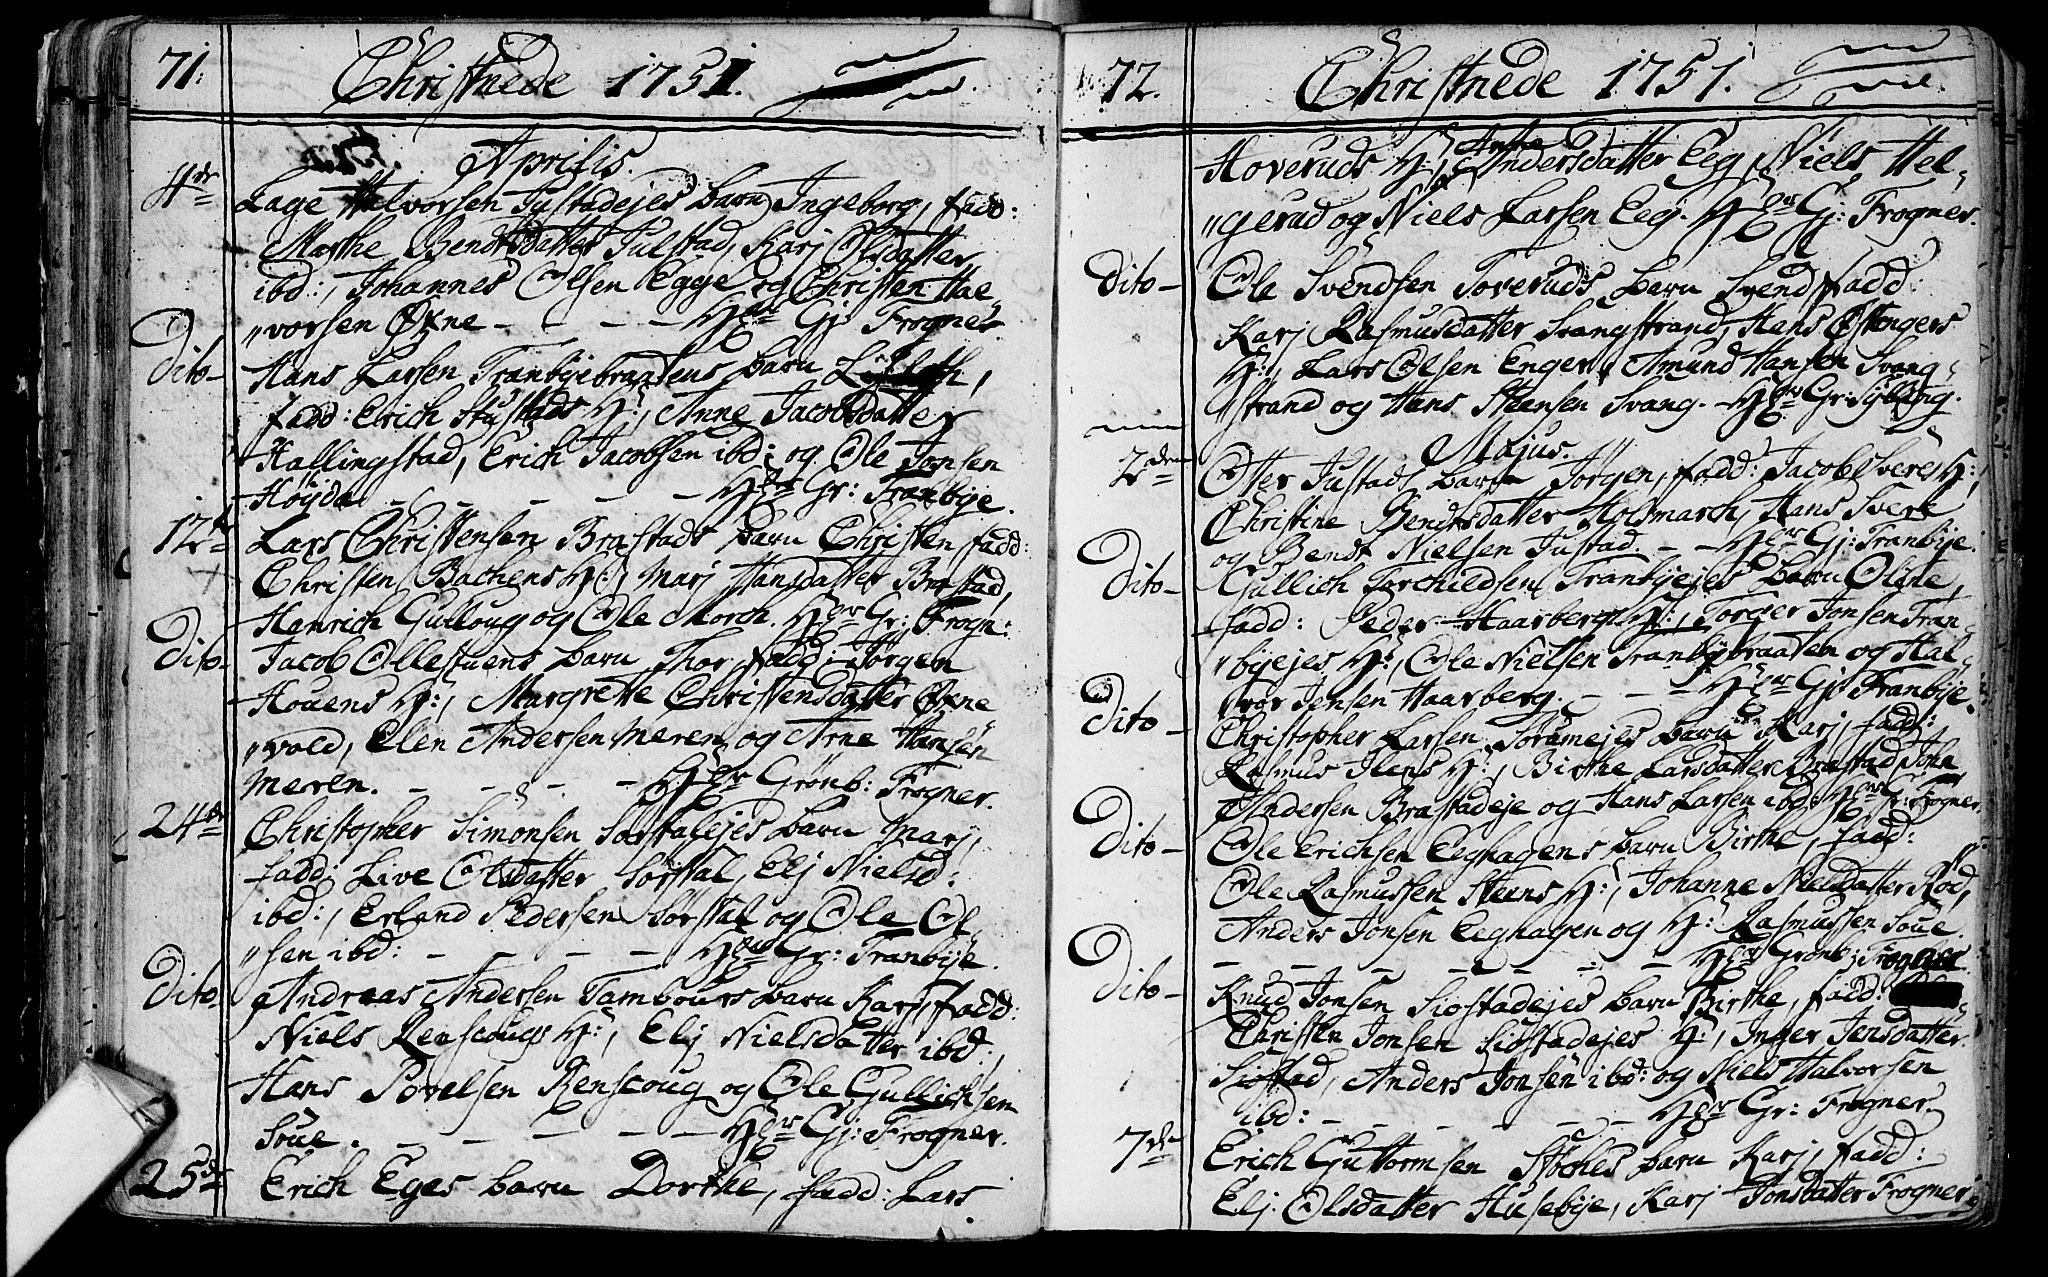 71.
Christnede 1751.
Aprilis.
4de Lage Halvorsen Justadejes barn Ingeborg, fadd:
Marthe Bendtsdatter Julstad, Karj Olsdatter
ibd:, Johannes Olsen Egge og Christen Hal
"vorsen Øxne - - - - Gj: Frogner
Dito - Hans Larsen Tranbyebraatens barn
fadd: Erich Stustads H:, Anne Jacobsdatter
Hallingstad, Erich Jacobsen ibd: og Ole Jonsen
Høyda - - - - - Gr: Tranbye.
12te Lars Christensen Brastads barn Christen fadd:
Christen Bachens H:, Marj Hansdatter Brastad,
Hanrich Gulloug og Ole Morch. Gr: Frogn:
Dito - Jacob Ollestuens barn Thor, fadd: Jørgen
Houens H:, Margrette Christensdatter Øxne
"vold, Elen Andersen Meren og Arne Hansen
Meren. - - - - Grönb: Frogner.
24de Christopher Simonsen Sørstalejes barn Marj,
fadd: Live Olsdatter Sørstal, Elj Nielsd:
ibd:, Erland Pedersen Sørstal og Ole Ol,
"sen ibd: - - - - - Gr: Tranbye.
Dito. Andreas Andersen Tambours barn Karj, fadd:
Niels Renscougs H:, Elj Nielsdatter ibd:,
Hans Povelsen Renscoug og Ole Gullichsen
Soue. - - - - - Gj: Frogner.
25de Erich Eges barn Dorthe, fadd: Lars
72.
Christnede 1751.
Anthe
Hoveruds H:, Andersdatter Eeg, Niels Hel,
"gerud og Niels Larsen Eeg. Gj: Frogner.
Dito - Ole Svendsen Toveruds barn Svend, fadd:
Karj Rasmusdatter Svangstrand, Hans Østengers
H:, Lars Olsen Enger, Amund Hansen Svang,
"strand og Hans Steensen Svang. - Gr: Sylling.
Majus.
2den Otter Justads barn Jørgen, fadd: Jacob Sveres H:,
Christine Bendtsdatter Holsmarch, Hans Svere
og Bendt Nielsen Justad. - - Gj: Tranbye.
Dito - Gullich Torchildsen Tranbyejes barn Oline,
fadd: Peder Haarbergs H:, Torger Jonsen Tran-
"byejes H:, Ole Nielsen Tranbybraaten og Hal-
"vor Jensen Haarberg. - - - Gj: Tranbye.
Dito - Christopher Larsen Soramejes barn Karj, fadd:
Rasmus Ilens H:, Birthe Larsdatter Brastad, John
Andersen Brastadeje og Hans Larsen ibd: Gr: Frogner.
Dito - Ole Erichsen Eeghagens barn Birthe, fadd:
Ole Rasmussen Steens H:, Johanne Nielsdatter Rød,
Anders Jonsen Eeghagen og H: Rasmussen Soue.
- - - - - - - - Grönb: Frogner
Dito - Knud Jonsen Siostadejes barn Birthe, fadd:
Christen Jonsen Siostadejes H:, Inger Jensdatter
Siostad, Anders Jonsen ibd: og Niels Halvorsen
ibd: - - - - - - - Gr: Frogner.
7de Erich Guttormsen Støches barn Karj, fadd:
Elj: Olsdatter Husebye, Karj Jonsdatter Frogner